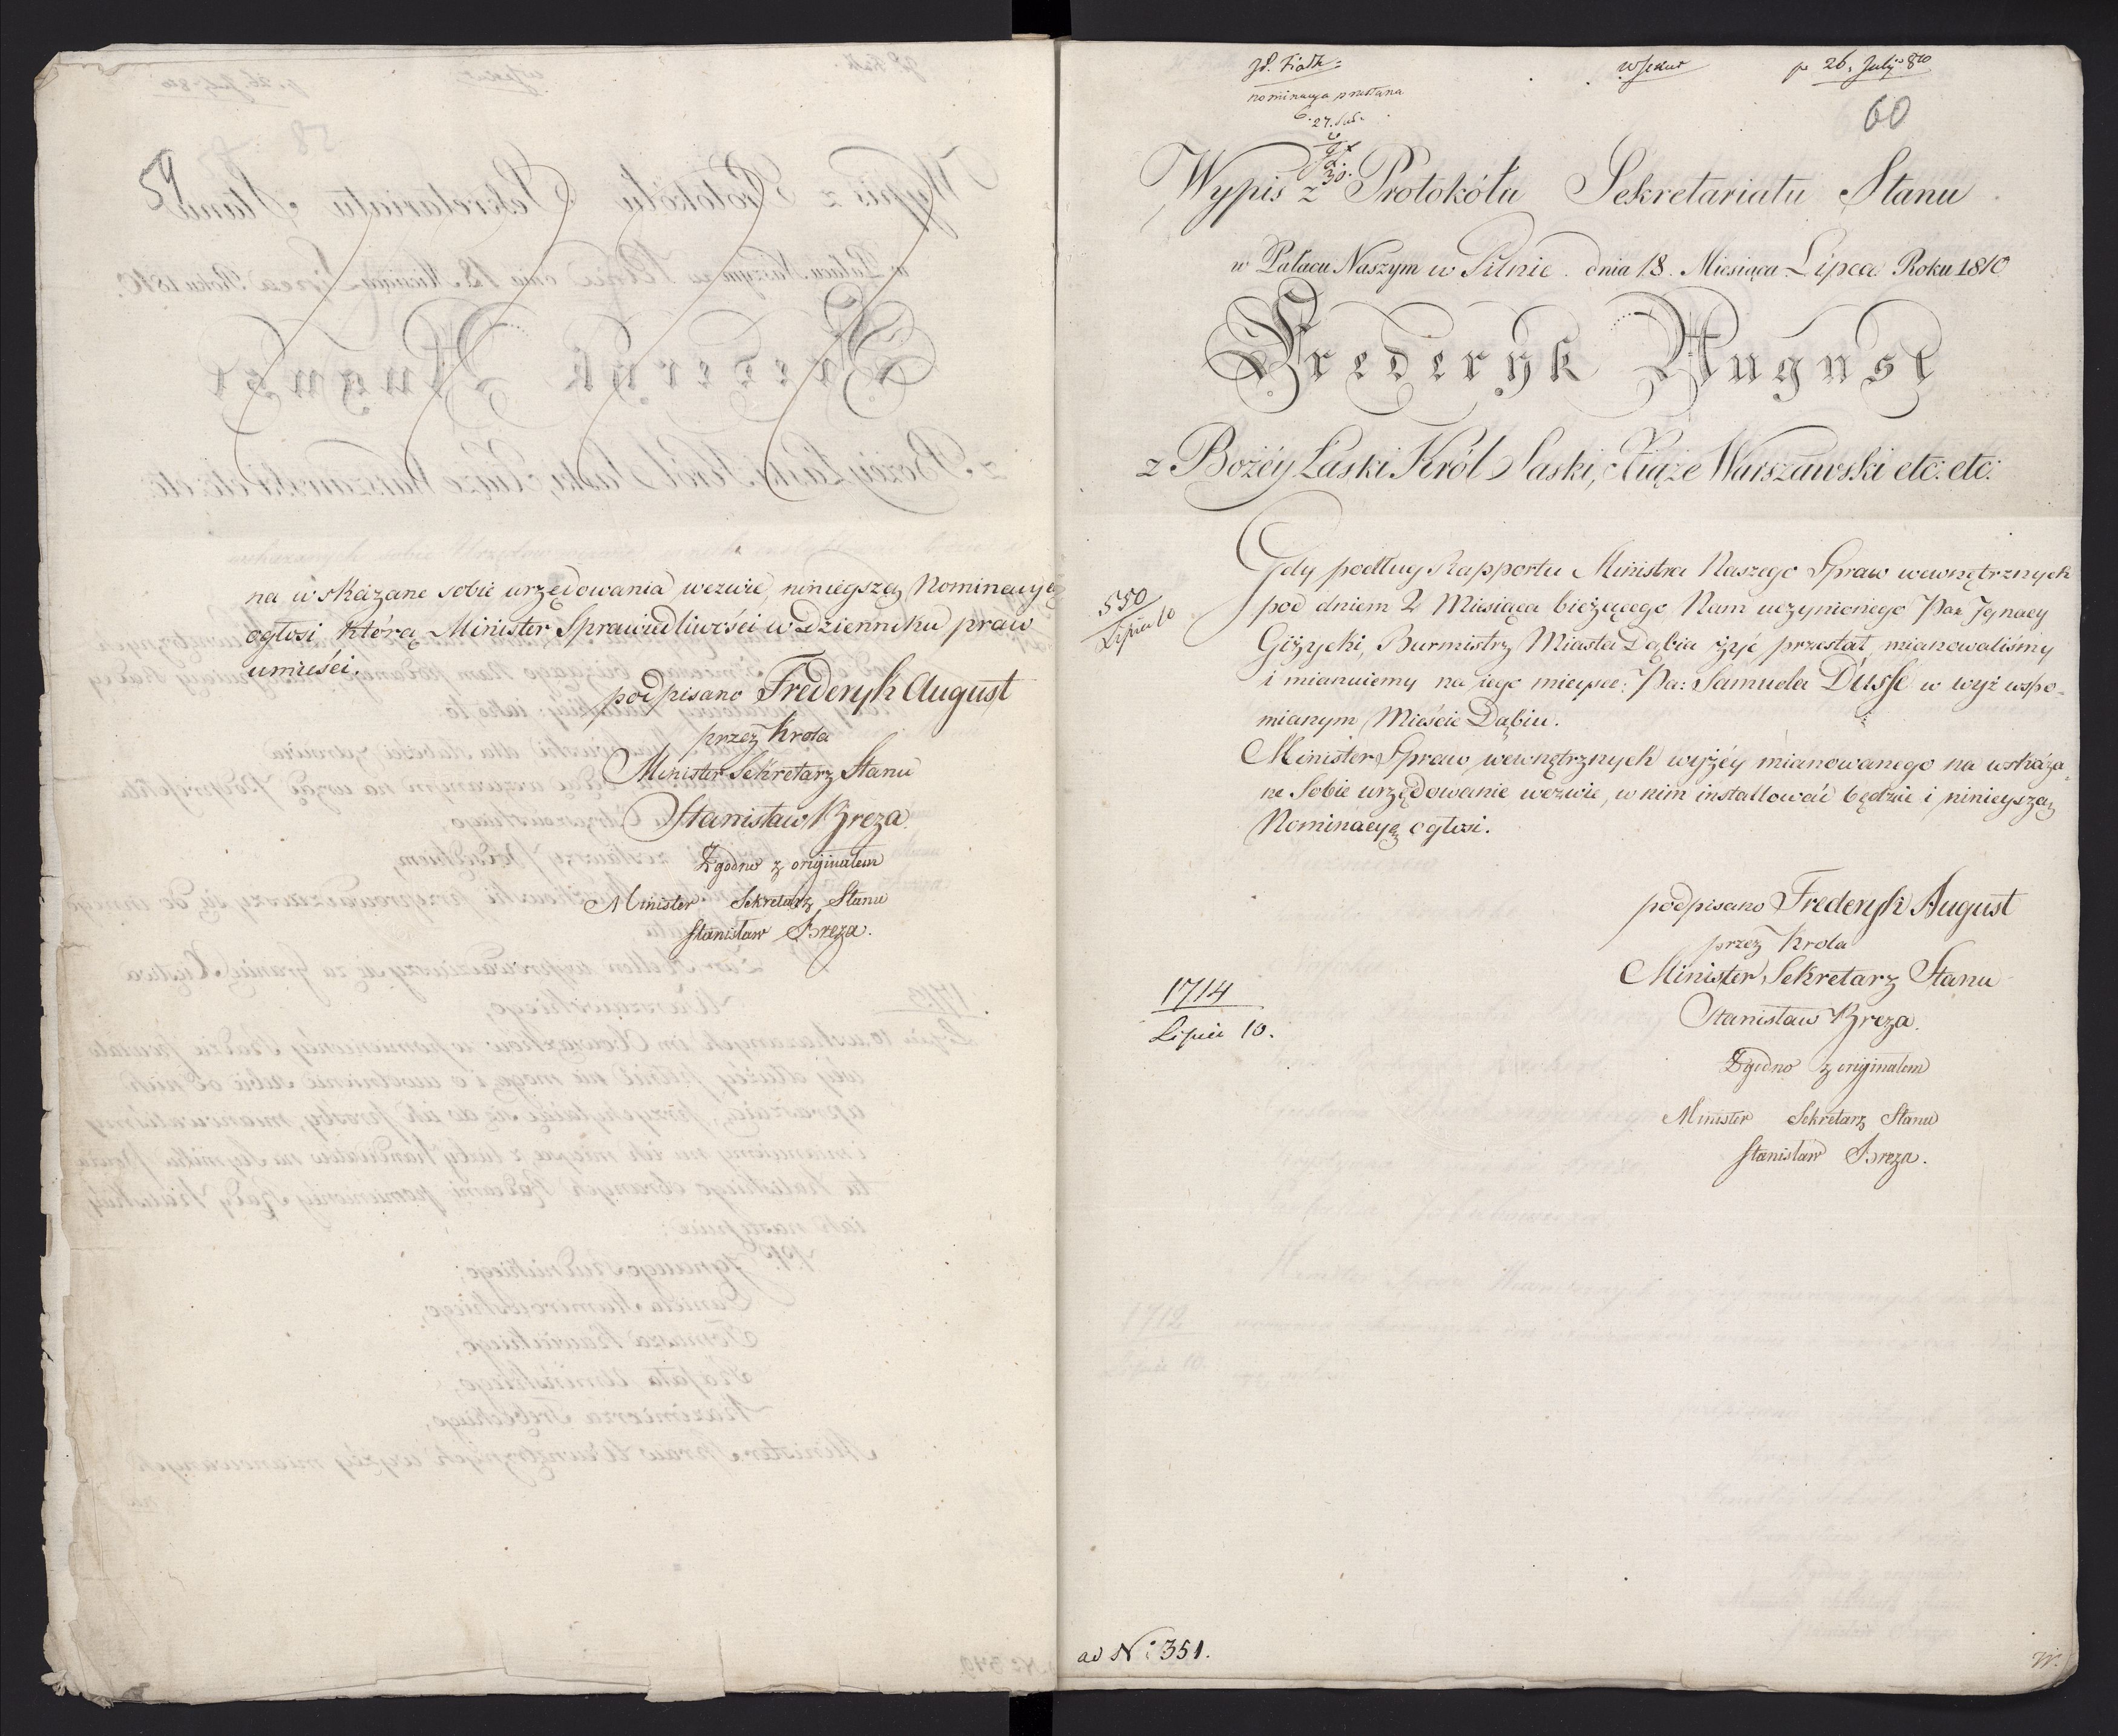 59
na wskazane sobie urzędowania wezwie, ninieyszą Nominacyią
ogłosi którą Minister Sprawiedliwości w Dzienniku praw
umieści.
podpisano Frederyk August
przez Krola
Minister Sekretarz Stanu
Stanisław Breza.
Zgodno z originałem
Minister Sekretarz Stanu
Stanisław Breza.
nominacya przesłana
26. July 810
60
Wypis z Protokółu Sekretariatu Stanu
w Pałacu Naszym w Pilnie dnia 18. Miesiąca Lipca Roku 1810
Frederyk August
z Bożéy Łaski Król Saski, Xiąże Warszawski etc: etc:
550
Lipiec 10
Gdy podług Rapportu Ministra Naszego Spraw wewnętrznych
pod dniem 2 Miesiąca bieżącego Nam uczynionego Pan Jgnacy
Giżycki, Burmistrz Miasta Dąbia żyć przestał, mianowaliśmy
i mianuiemy na iego mieysce: Pa: Samuela Dusse w wyż wspo-
mianym Mieście Dąbiu.
Minister Spraw wewnętrznych wyżéy mianowanego na wskaza-
ne Sobie urzędowanie wezwie, w nim installować będzie i ninieyszą
Nominacyą ogłosi.
podpisano Frederyk August
przez Krola
Minister Sekretarz Stanu
Stanisław Breza.
1714
Lipiec 10.
Zgodno z originałem
Minister Sekretarz Stanu
Stanisław Breza.
ad No: 351.